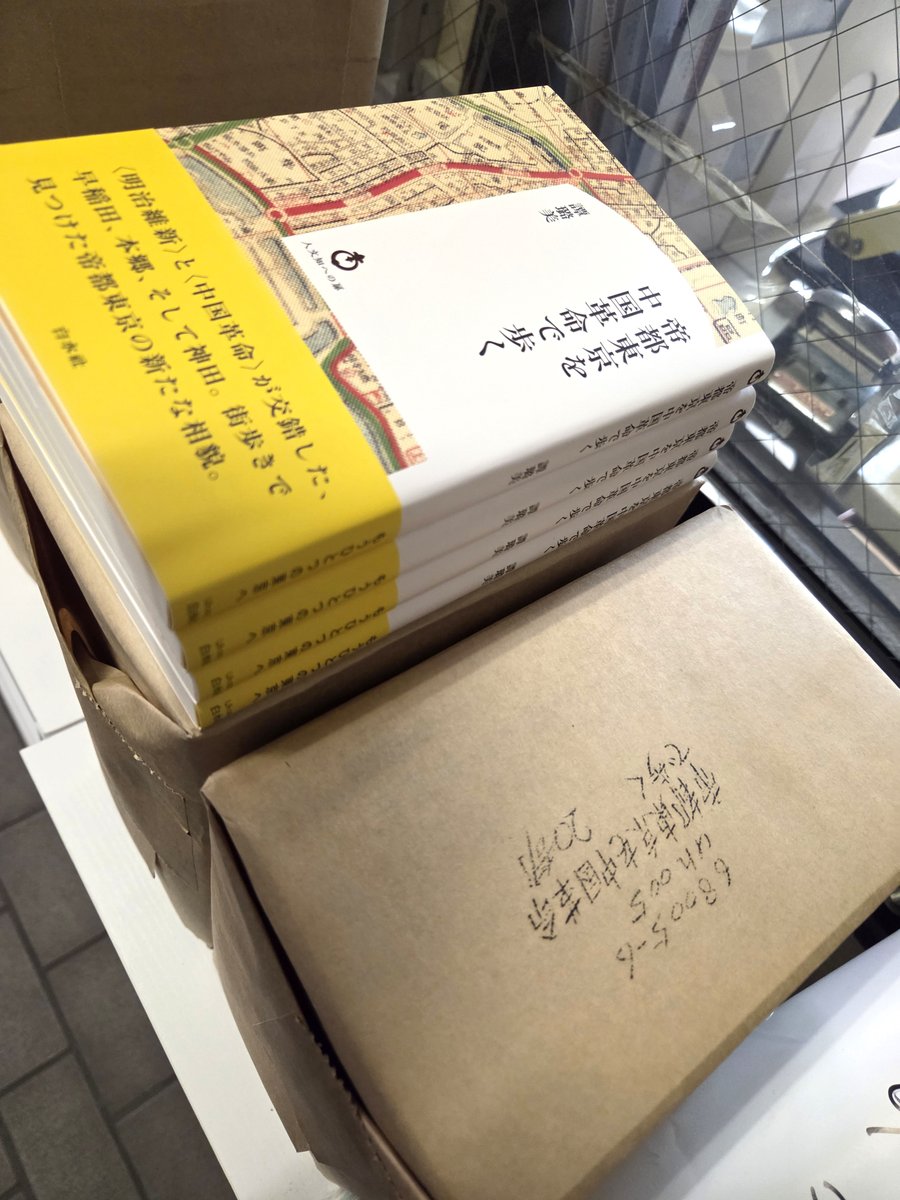 譚璐美
帝都東京を
中国革命で歩く
人文知への扉
〈明治維新〉と〈中国革命〉が交錯した、
早稲田、本郷、そして神田。街歩きで
見つけた帝都東京の新たな相貌。
白水社
帝都東京を中国革命で歩く 譚璐美
もうひとつの東京へ
帝都東京を中国革命で歩く 譚璐美
もうひとつの東京へ
帝都東京を中国革命で歩く 譚璐美
もうひとつの東京へ
帝都東京を中国革命で歩く 譚璐美
もうひとつの東京へ
68005-6
uh005
帝都東京を中国革命
で歩く
20部